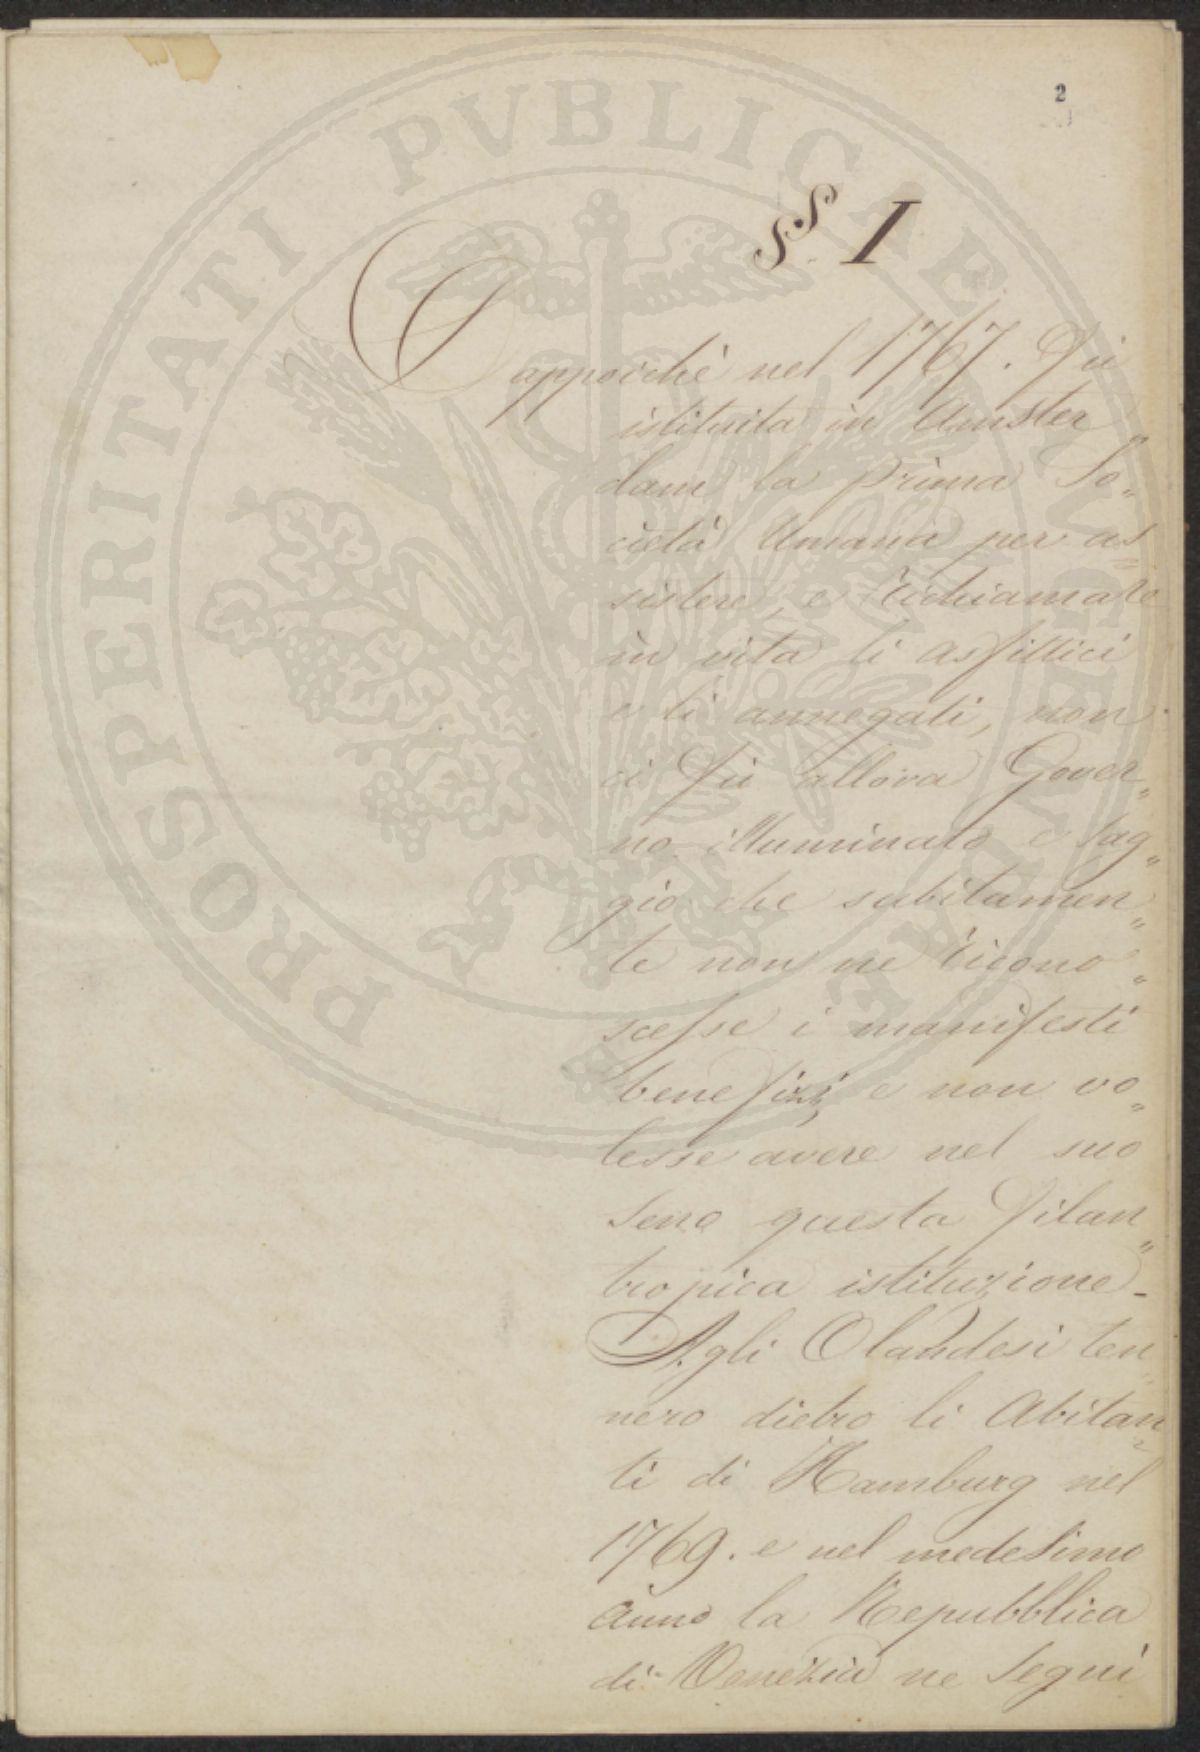 2
§ I
Dappoichè nel 1767. Fù
istituita in Amster„
dam la prima So„
cietà Umana per as„
sistere, e richiamare
in vita li asfittici
e li annegati, non
ci fù allora Gover„
no illuminato e sag„
gio che subitamen„
te non ne ricono„
scesse i manifesti
benefizj e non vo„
lesse avere nel suo
seno questa filan„
tropica istituzione_
Agli Olandesi ten„
nero dietro li Abitan„
ti di Hamburg nel
1769. e nel medesimo
anno la Repubblica
di Venezia ne seguì
PROSPERITATI PVBLICAE